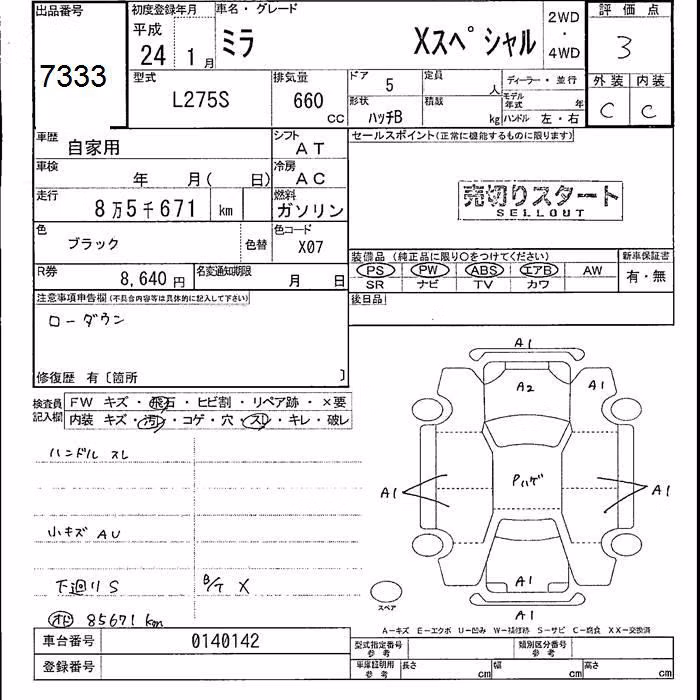 出品番号
7333
初度登録年月
平成
24年 1月
車名・グレード
ミラ Xスペシャル
2WD
・
4WD
評価点
3
外装 内装
C C
型式
L275S
排気量
660
CC
ドア 5
形状 ハッチB
定員 人
積載 kg
ディーラー・並行
モデル年式 年
ハンドル 左・右
車歴 自家用
シフト AT
車検 年 月( 日)
冷房 AC
走行 8万5千671 km
燃料 ガソリン
色 ブラック 色替
色コード X07
R券 8,640円
名変通知期限 月 日
セールスポイント(正常に機能するものに限ります)
売切りスタート
SELLOUT
装備品 (純正品に限り○をつけてください)
新車保証書
PS PW ABS エアB AW
SR ナビ TV カワ
有・無
後日品
注意事項申告欄(不具合内容等は具体的に記入して下さい)
ローダウン
修復歴 有〔箇所 〕
検査員記入欄
FW キズ・飛石・ヒビ割・リペア跡・×要
内装 キズ・汚レ・コゲ・穴・スレ・キレ・破レ
ハンドル スレ
小キズ AU
下廻り S
B/T X
オド 85671 km
A1
A2
A1
Pハゲ
A1
A1
A1
A1
スペア
A-キズ E-エクボ U-凹み W-補修跡 S-サビ C-腐食 XX-交換済
車台番号 0140142
登録番号
型式指定番号 参考
類別区分番号 参考
車庫証明用 参考
長さ cm
幅 cm
高さ cm